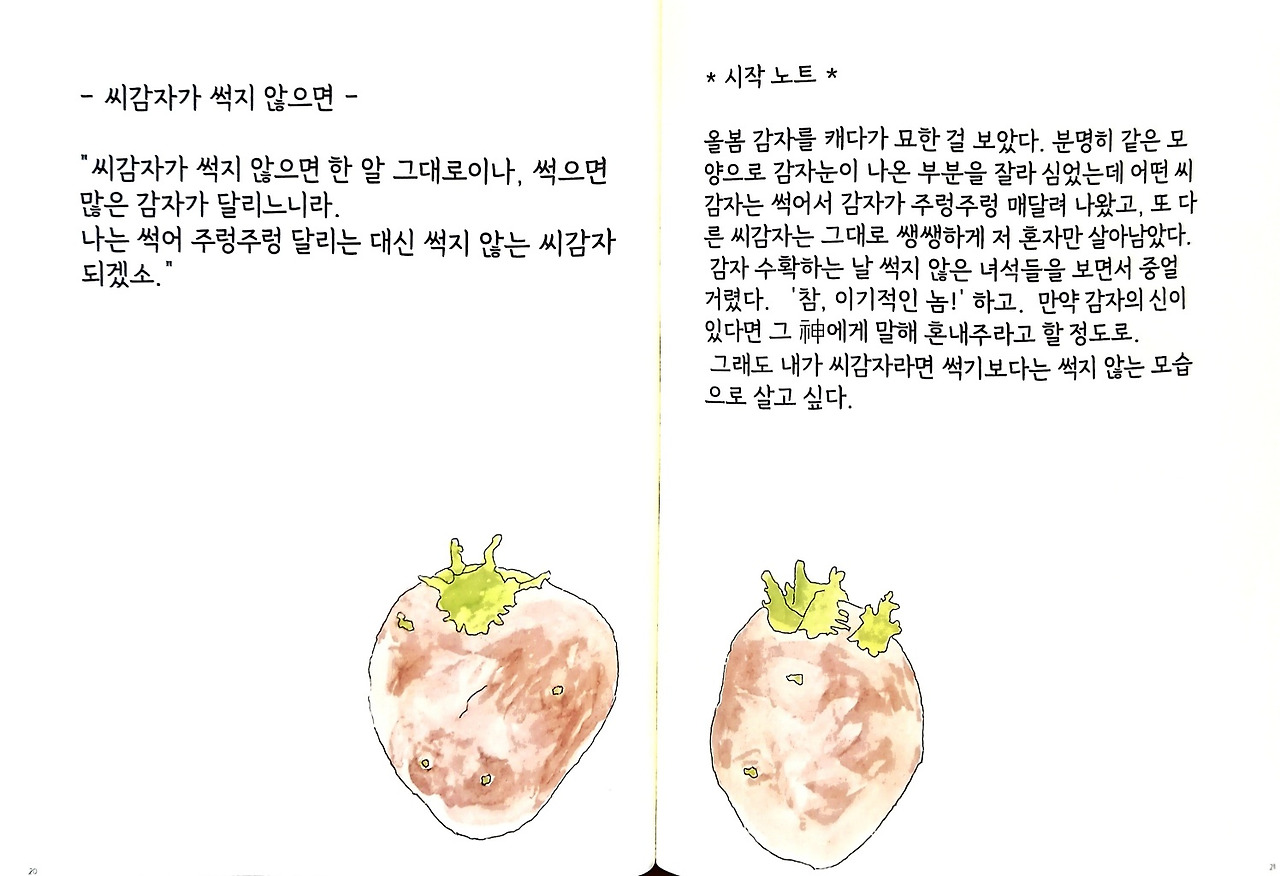 - 씨감자가 썩지 않으면 -
"씨감자가 썩지 않으면 한 알 그대로이나, 썩으면
많은 감자가 달리느니라.
나는 썩어 주렁주렁 달리는 대신 썩지 않는 씨감자
되겠소."
20
* 시작 노트 *
올봄 감자를 캐다가 묘한 걸 보았다. 분명히 같은 모
양으로 감자눈이 나온 부분을 잘라 심었는데 어떤 씨
감자는 썩어서 감자가 주렁주렁 매달려 나왔고, 또 다
른 씨감자는 그대로 쌩쌩하게 저 혼자만 살아남았다.
감자 수확하는 날 썩지 않은 녀석들을 보면서 중얼
거렸다. '참, 이기적인 놈!' 하고. 만약 감자의 신이
있다면 그 神에게 말해 혼내주라고 할 정도로.
그래도 내가 씨감자라면 썩기보다는 썩지 않는 모습
으로 살고 싶다.